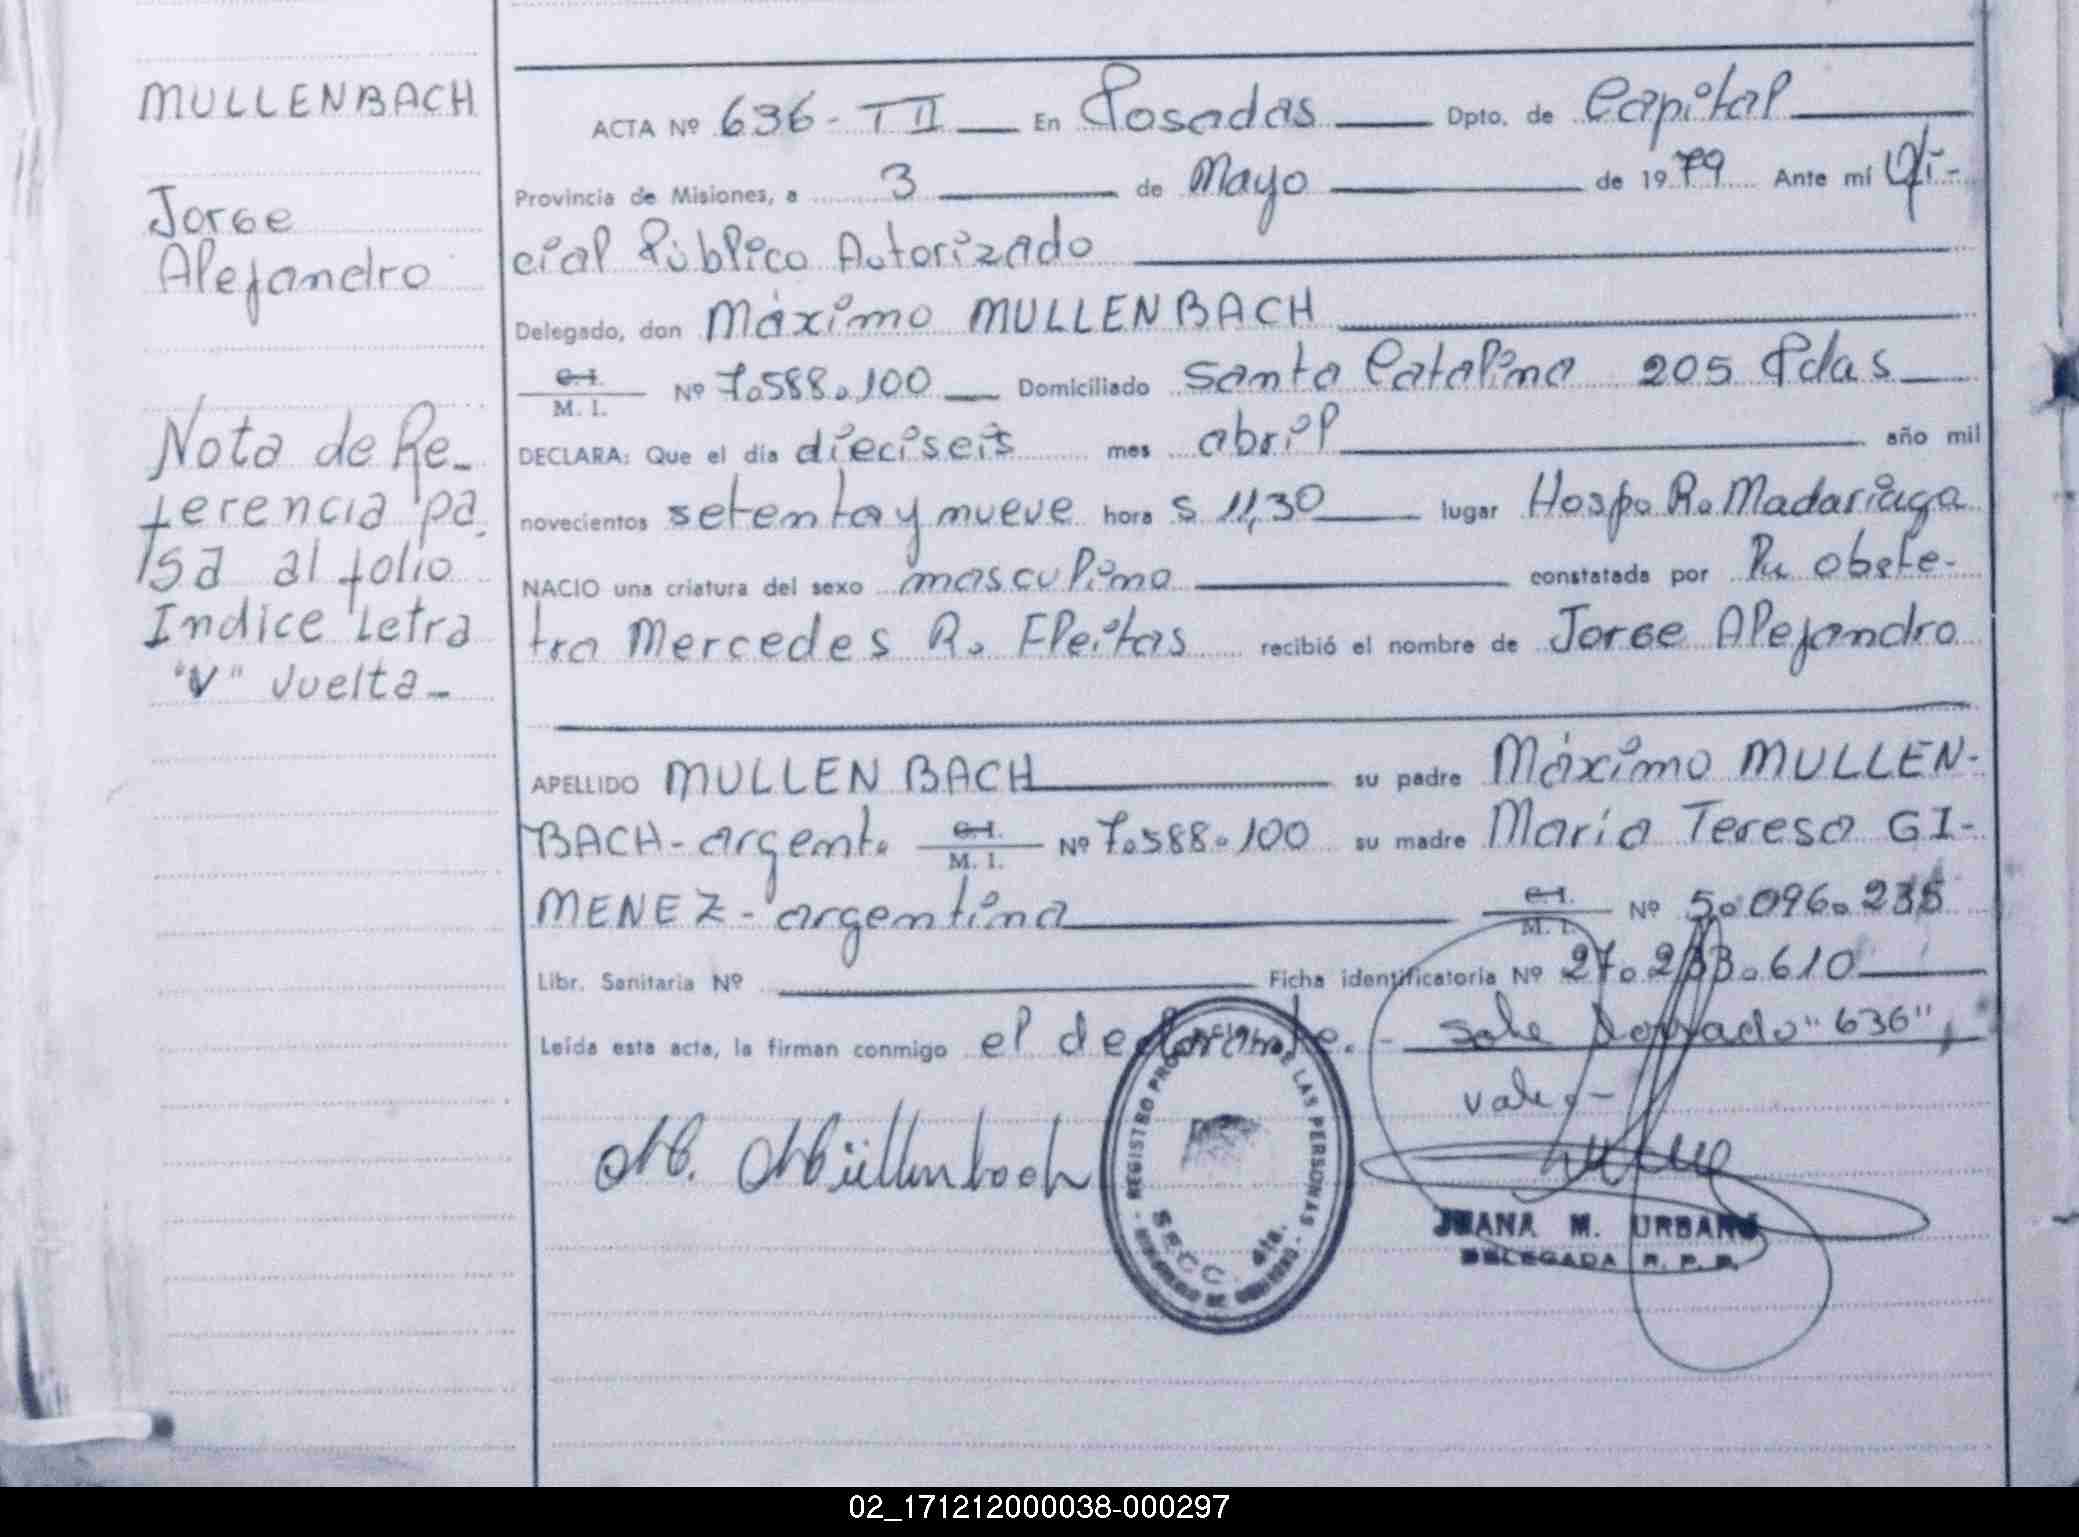 MULLENBACH
Jorge
Alejandro
Nota de Re-
ferencia pa-
sa al folio
Indice Letra
"V" vuelta-
ACTA Nº 636 - T II En Posadas Dpto. de Capital
Provincia de Misiones, a 3 de Mayo de 1979 Ante mí Ofi-
cial Público Autorizado
Delegado, don Máximo MULLENBACH
C.I.
M. I. Nº 7.588.100 Domiciliado Santa Catalina 205 Pdas
DECLARA: Que el día dieciseis mes abril año mil
novecientos setenta y nueve hora s 11,30 lugar Hosp. R. Madariaga
NACIO una criatura del sexo masculino constatada por la obste-
tra Mercedes R. Fleitas recibió el nombre de Jorge Alejandro
APELLIDO MULLENBACH su padre Máximo MULLEN-
BACH - argent. C.I. M. I. Nº 7.588.100 su madre María Teresa GI-
MENEZ - argentina C.I. M. I. Nº 5.096.235
Libr. Sanitaria Nº Ficha identificatoria Nº 27.233.610
Leída esta acta, la firman conmigo el declarante. - Sobre borrado "636",
vale.-
M. Müllenbach
REGISTRO PROVINCIAL DE LAS PERSONAS
SECC. 4ta.
JUANA M. URBANO
DELEGADA R. P. P.
02_171212000038-000297